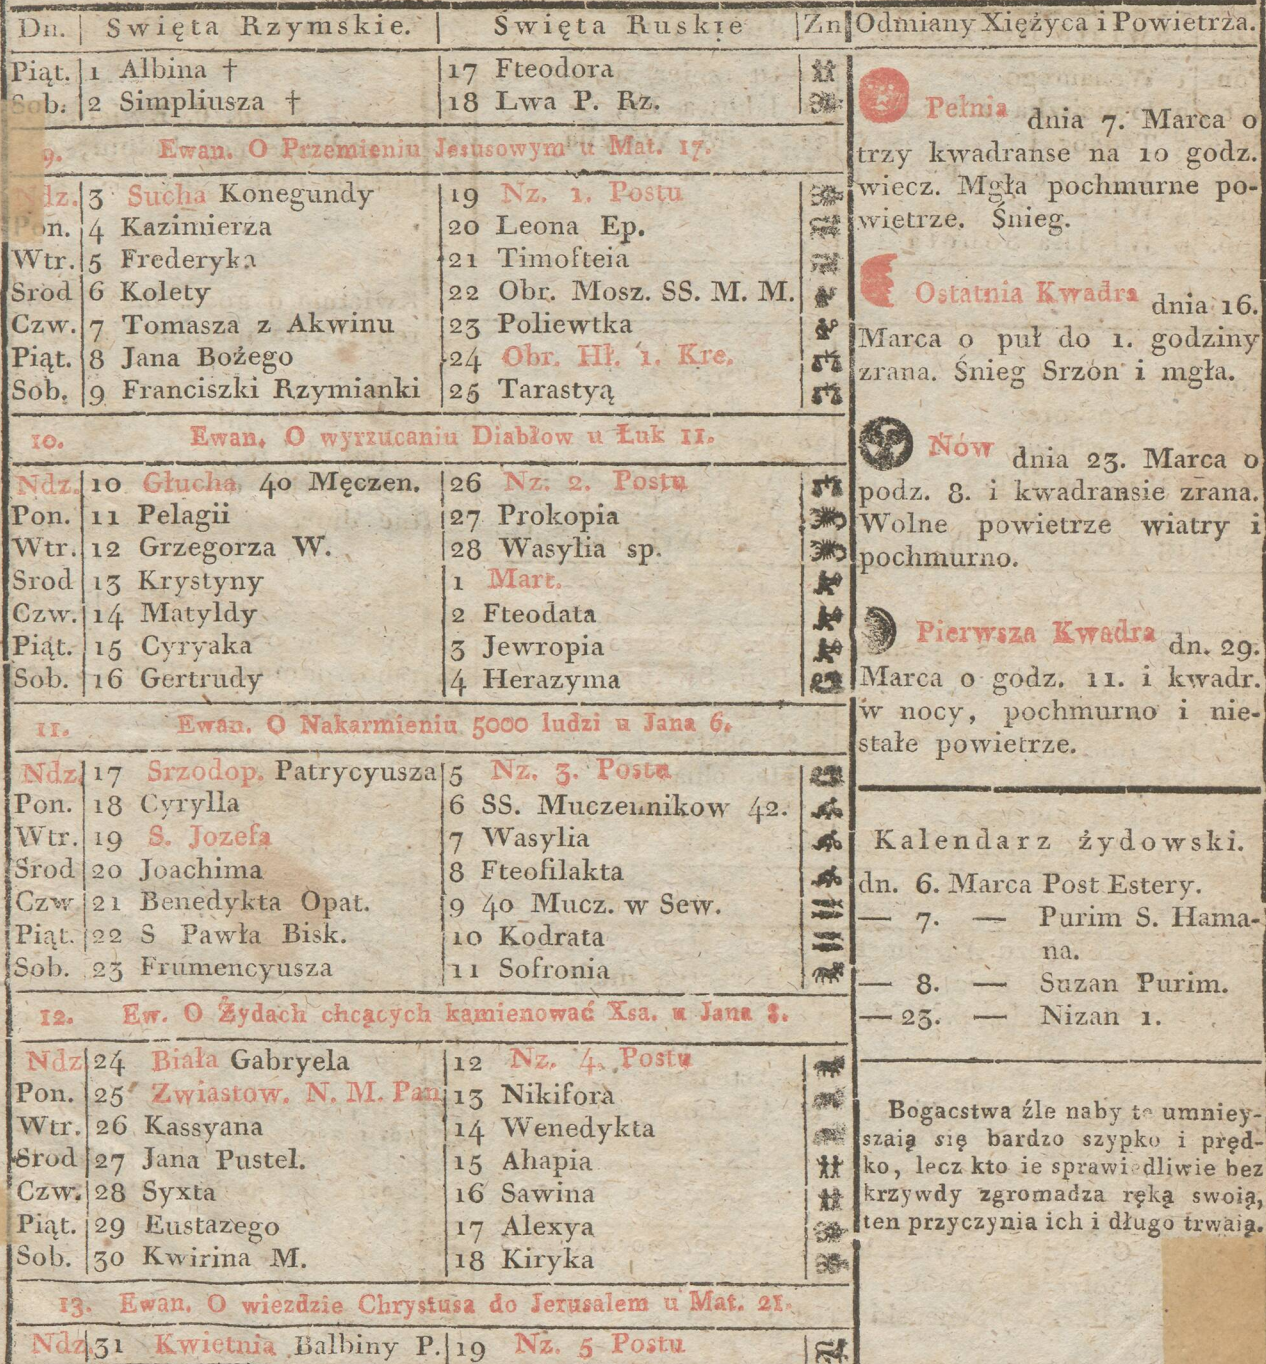 Dn. Swięta Rzymskie. Swięta Ruskie Zn Odmiany Xiężyca i Powietrza.
Piąt. 1 Albina † 17 Fteodora
Sob. 2 Simpliusza † 18 Lwa P. Rz.
9. Ewan. O Przemieniu Jesusowym u Mat. 17.
Ndz. 3 Sucha Konegundy 19 Nz. 1. Postu
Pon. 4 Kazimierza 20 Leona Ep.
Wtr. 5 Frederyka 21 Timofteia
Srod 6 Kolety 22 Obr. Mosz. SS. M. M.
Czw. 7 Tomasza z Akwinu 23 Poliewtka
Piąt. 8 Jana Bożego 24 Obr. Hł. 1. Kre.
Sob. 9 Franciszki Rzymianki 25 Tarastyą
10. Ewan. O wyrzucaniu Diabłow u Łuk 11.
Ndz. 10 Głucha 40 Męczen. 26 Nz. 2. Postu
Pon. 11 Pelagii 27 Prokopia
Wtr. 12 Grzegorza W. 28 Wasylia sp.
Srod 13 Krystyny 1 Mart.
Czw. 14 Matyldy 2 Fteodata
Piąt. 15 Cyryaka 3 Jewropia
Sob. 16 Gertrudy 4 Herazyma
11. Ewan. O Nakarmieniu 5000 ludzi u Jana 6.
Ndz 17 Srzodop. Patrycyusza 5 Nz. 3. Postu
Pon. 18 Cyrylla 6 SS. Muczennikow 42.
Wtr. 19 S. Jozefa 7 Wasylia
Srod 20 Joachima 8 Fteofilakta
Czw 21 Benedykta Opat. 9 40 Mucz. w Sew.
Piąt. 22 S Pawła Bisk. 10 Kodrata
Sob. 23 Frumencyusza 11 Sofronia
12. Ew. O Żydach chcących kamienować Xsa. u Jana 8.
Ndz 24 Biała Gabryela 12 Nz. 4. Postu
Pon. 25 Zwiastow. N. M. Pan 13 Nikifora
Wtr. 26 Kassyana 14 Wenedykta
Srod 27 Jana Pustel. 15 Ahapia
Czw. 28 Syxta 16 Sawina
Piąt. 29 Eustazego 17 Alexya
Sob. 30 Kwirina M. 18 Kiryka
13. Ewan. O wiezdzie Chrystusa do Jerusalem u Mat. 21.
Ndz 31 Kwietnia Balbiny P. 19 Nz. 5 Postu
Pełnia dnia 7. Marca o
trzy kwadranse na 10 godz.
wiecz. Mgła pochmurne po-
wietrze. Śnieg.
Ostatnia Kwadra dnia 16.
Marca o puł do 1. godziny
zrana. Śnieg Srzon i mgła.
Nów dnia 23. Marca o
podz. 8. i kwadransie zrana.
Wolne powietrze wiatry i
pochmurno.
Pierwsza Kwadra dn. 29.
Marca o godz. 11. i kwadr.
w nocy, pochmurno i nie-
stałe powietrze.
Kalendarz żydowski.
dn. 6. Marca Post Estery.
— 7. — Purim S. Hama-
na.
— 8. — Suzan Purim.
— 23. — Nizan 1.
Bogacstwa źle naby te umniey-
szaią się bardzo szypko i pręd-
ko, lecz kto ie sprawiedliwie bez
krzywdy zgromadza ręką swoią,
ten przyczynia ich i długo trwaią.